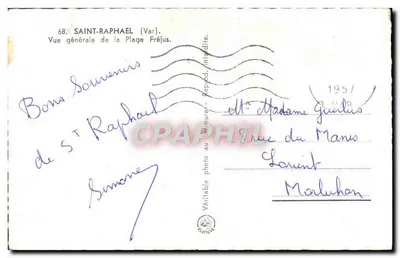 68. SAINT-RAPHAEL (Var).
Vue générale de la Plage Fréjus.
Bons Souvenirs
de St Raphael
Simone
Véritable photo au Bromure - Reprod. interdite.
1957
Mr Madame
rue du
Lorient
Morbihan
CPAPHIL